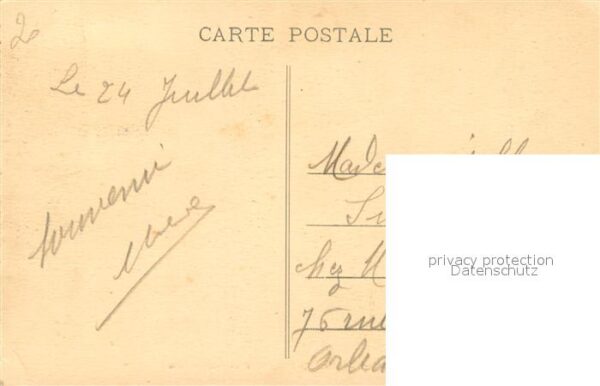 2
CARTE POSTALE
Le 24 Juillet
Souvenir
Made
chez M
76 rue
Orléa
privacy protection
Datenschutz